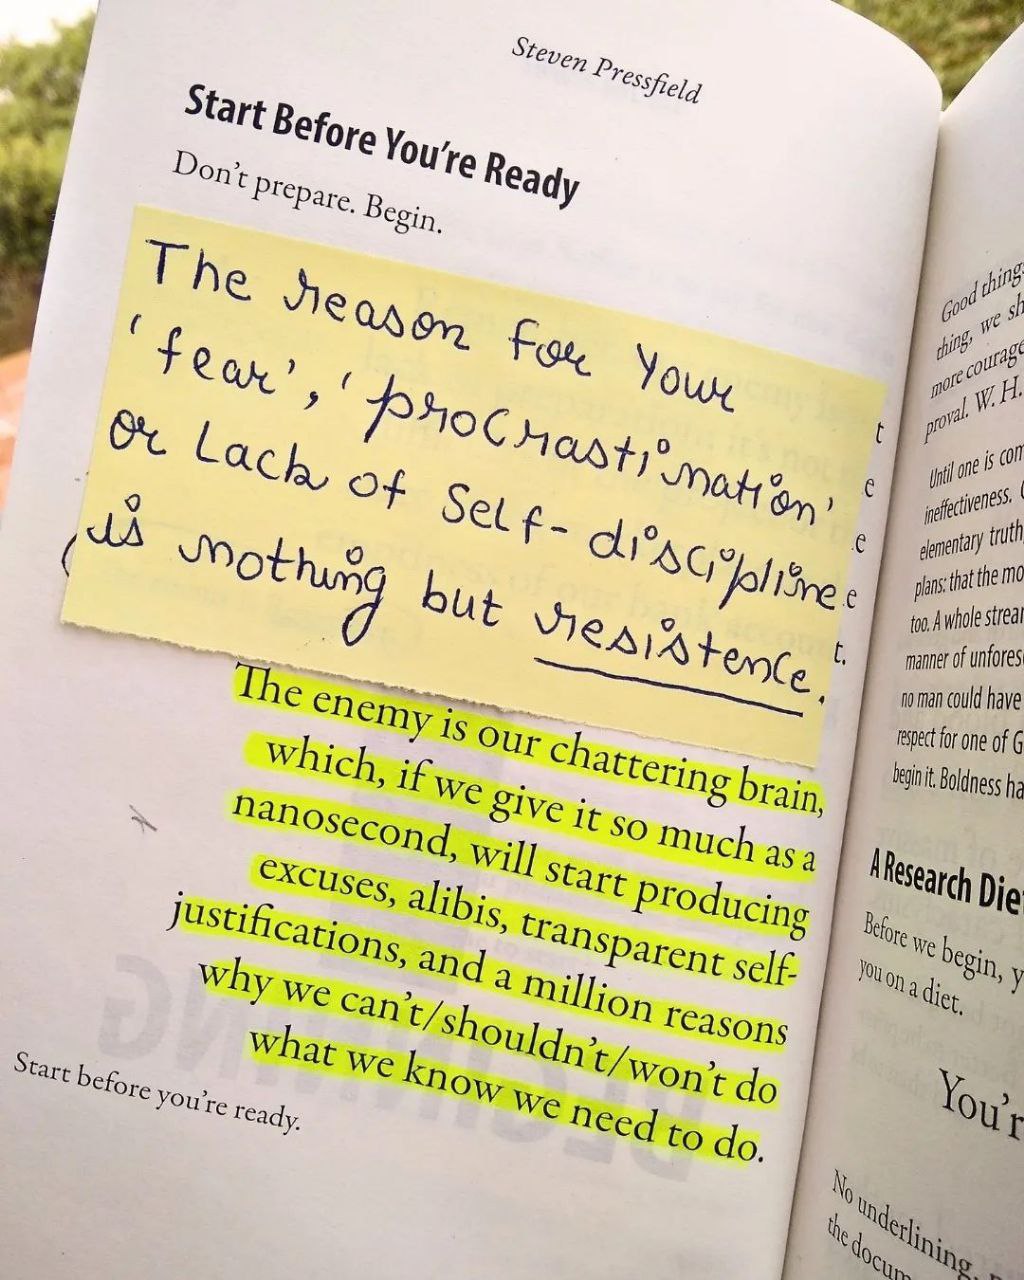 Steven Pressfield
Start Before You're Ready
Don't prepare. Begin.
The reason for Your
'fear', 'procrastination'
or Lack of Self-discipline
is nothing but resistence.
t
e
e
e
t.
(
The enemy is our chattering brain,
which, if we give it so much as a
nanosecond, will start producing
excuses, alibis, transparent self-
justifications, and a million reasons
why we can't/shouldn't/won't do
what we know we need to do.
Start before you're ready.
Good thing
thing, we sh
more courage
proval. W. H.
Until one is com
ineffectiveness.
elementary truth
plans: that the mo
too. A whole strea
manner of unfores
no man could have
respect for one of G
begin it. Boldness ha
A Research Die
Before we begin, y
you on a diet.
You'r
No underlining,
the docum